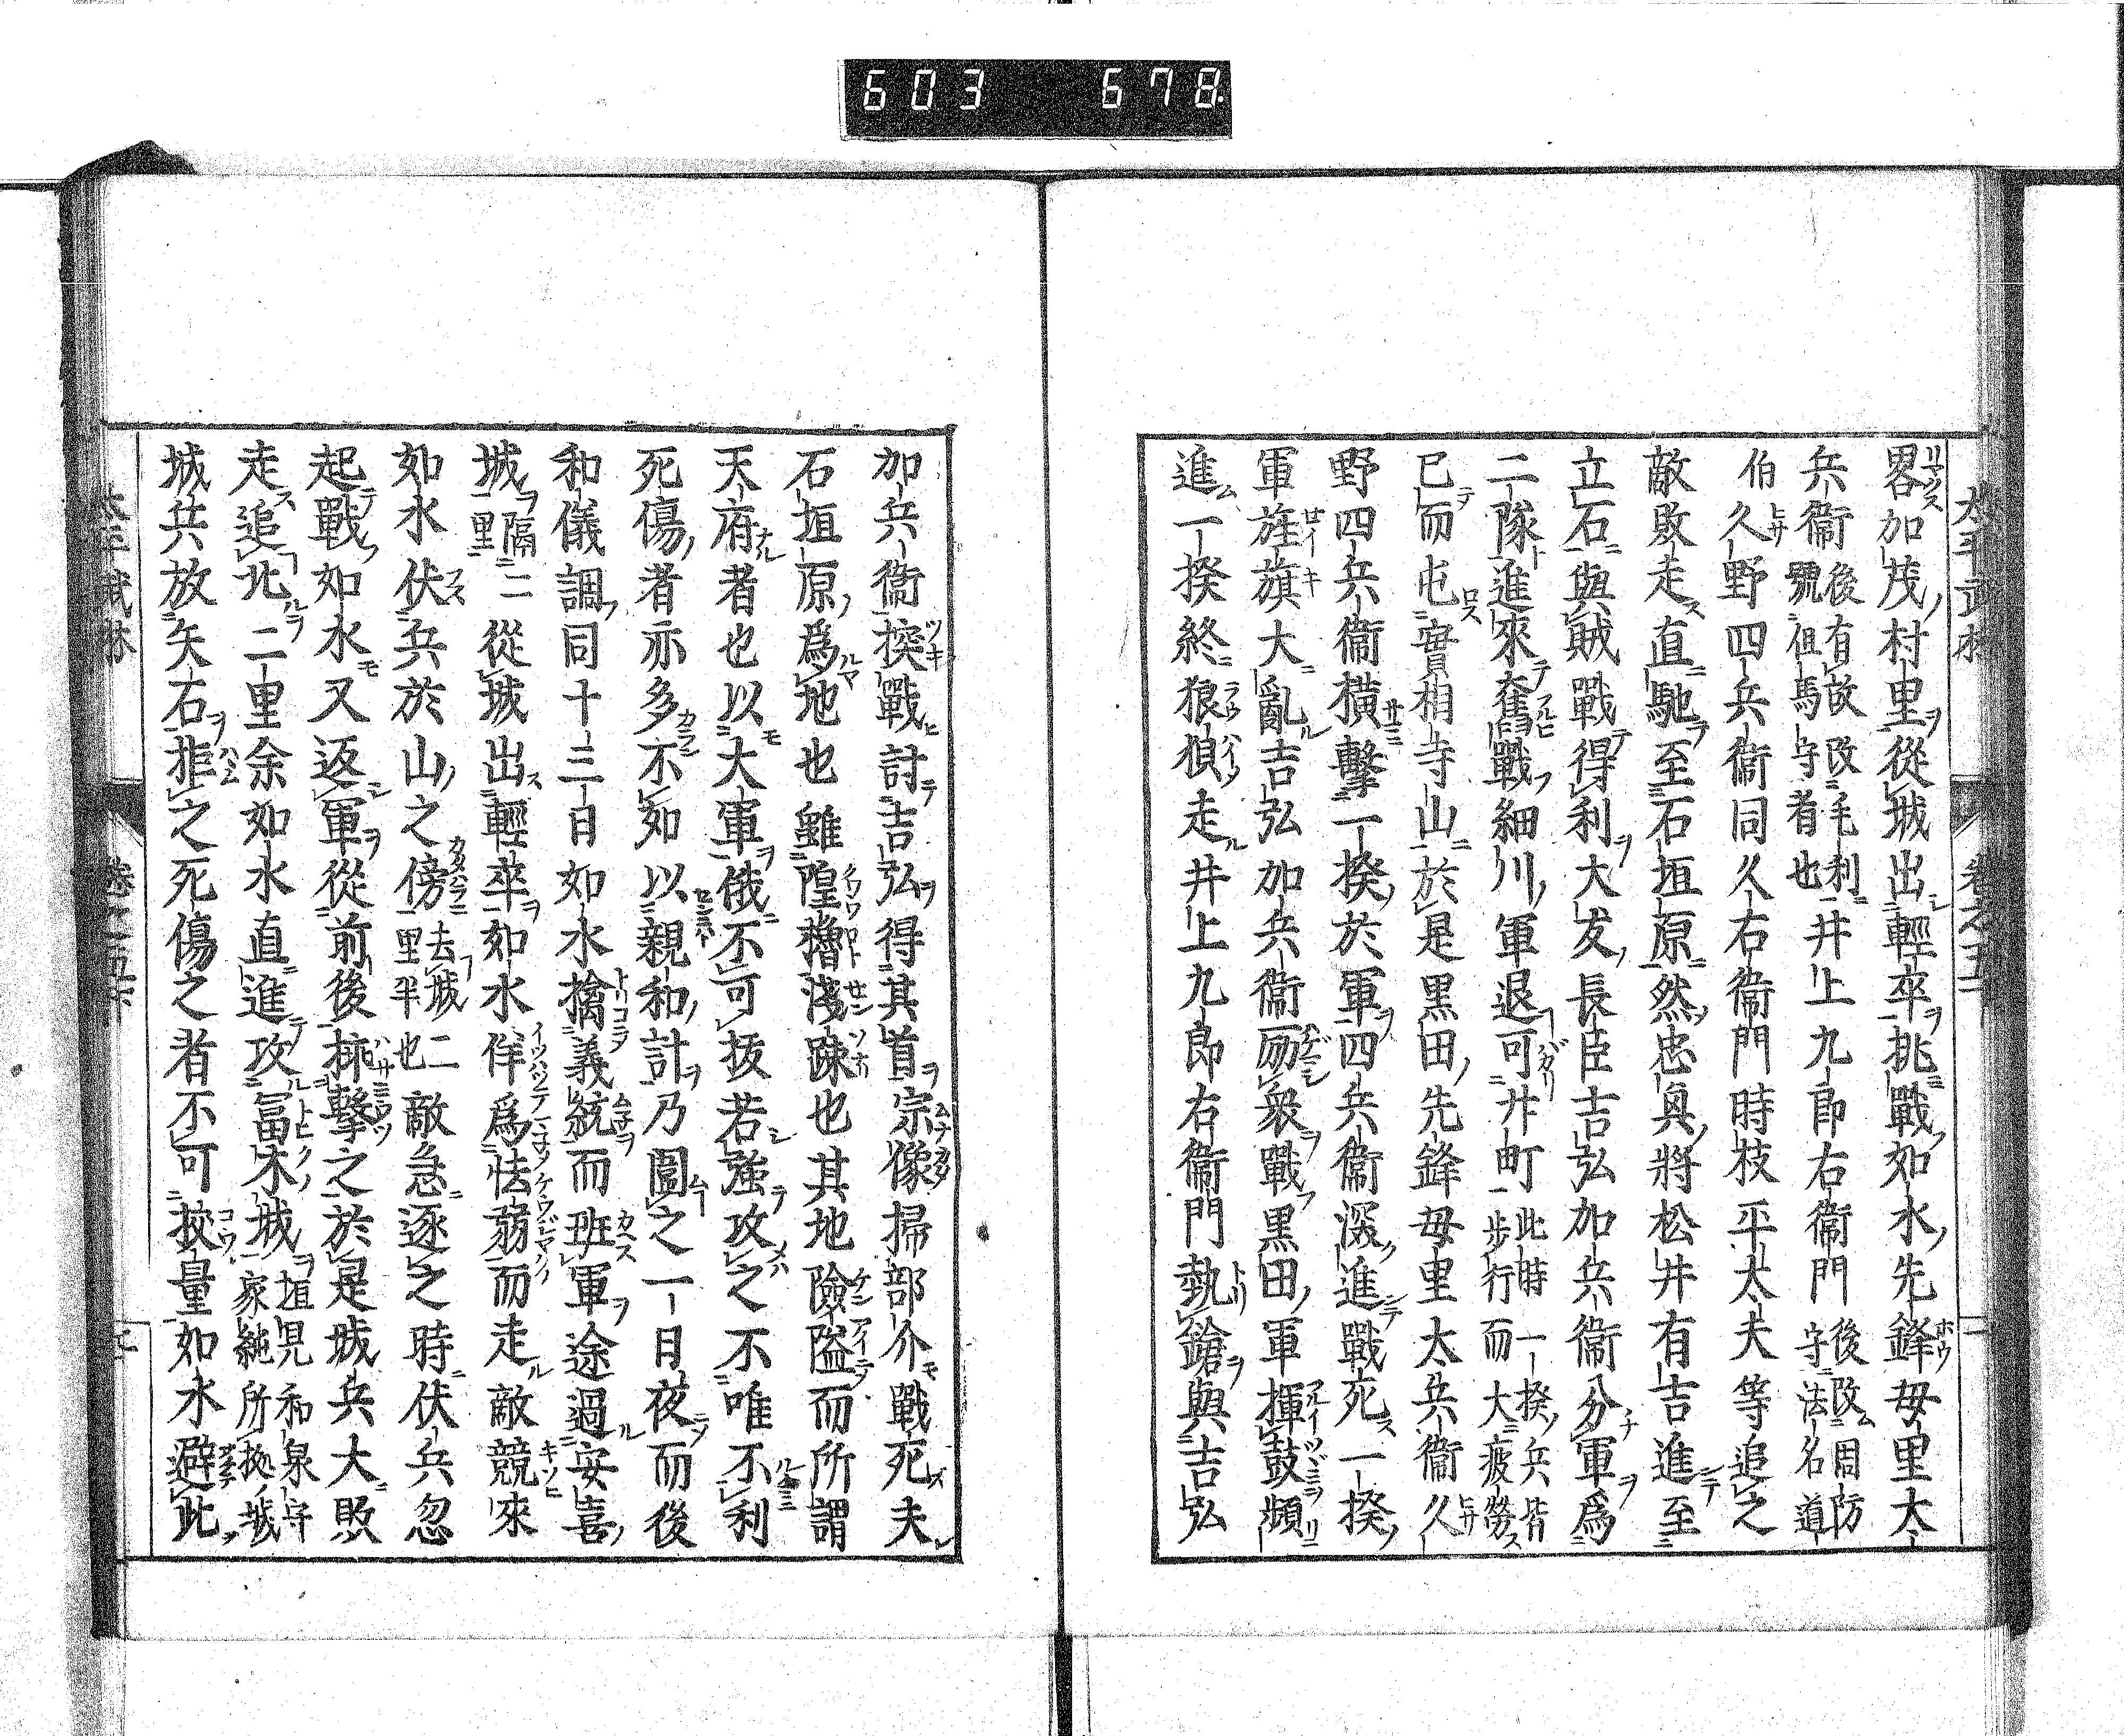 603 678
畧加茂村里從城出輕卒挑戰如水先鋒母里太
兵衞後有故改毛利號但馬守者也井上九郎右衞門後改周防守法名道
伯久野四兵衞同久右衞門時枝平太夫等追之
敵敗走直馳至石垣原然忠奥將松井有吉進至
立石與賊戰得利大友長臣吉弘加兵衞分軍爲
二隊進來奮戰細川軍退可廾町此時一揆兵皆步行而大疲勞
已而屯實相寺山於是黒田先鋒母里太兵衞久
野四兵衞横擊一揆於軍四兵衞深進戰死一揆
軍旌旗大亂吉弘加兵衞励衆戰黒田軍揮鼓頻
進一揆終狼狽走井上九郎右衞門執鎗與吉弘
加兵衞揬戰討吉弘得其首宗像掃部介戰死夫
石垣原爲地也雖隍櫓淺踈也其地險隘而所謂
天府者也以大軍俄不可拔若強攻之不唯不利
死傷者亦多不如以親和計乃圍之一日夜而後
和儀調同十三日如水擒義統而班軍途過安喜
城隔二里從城出輕卒如水佯爲怯弱而走敵競來
如水伏兵於山之傍去城二里半也敵急逐之時伏兵忽
起戰如水又返軍從前後挾擊之於是城兵大敗
走追北二里余如水直進攻冨木城垣見和泉守家純所拠城
城兵放矢石拒之死傷之者不可挍量如水避此